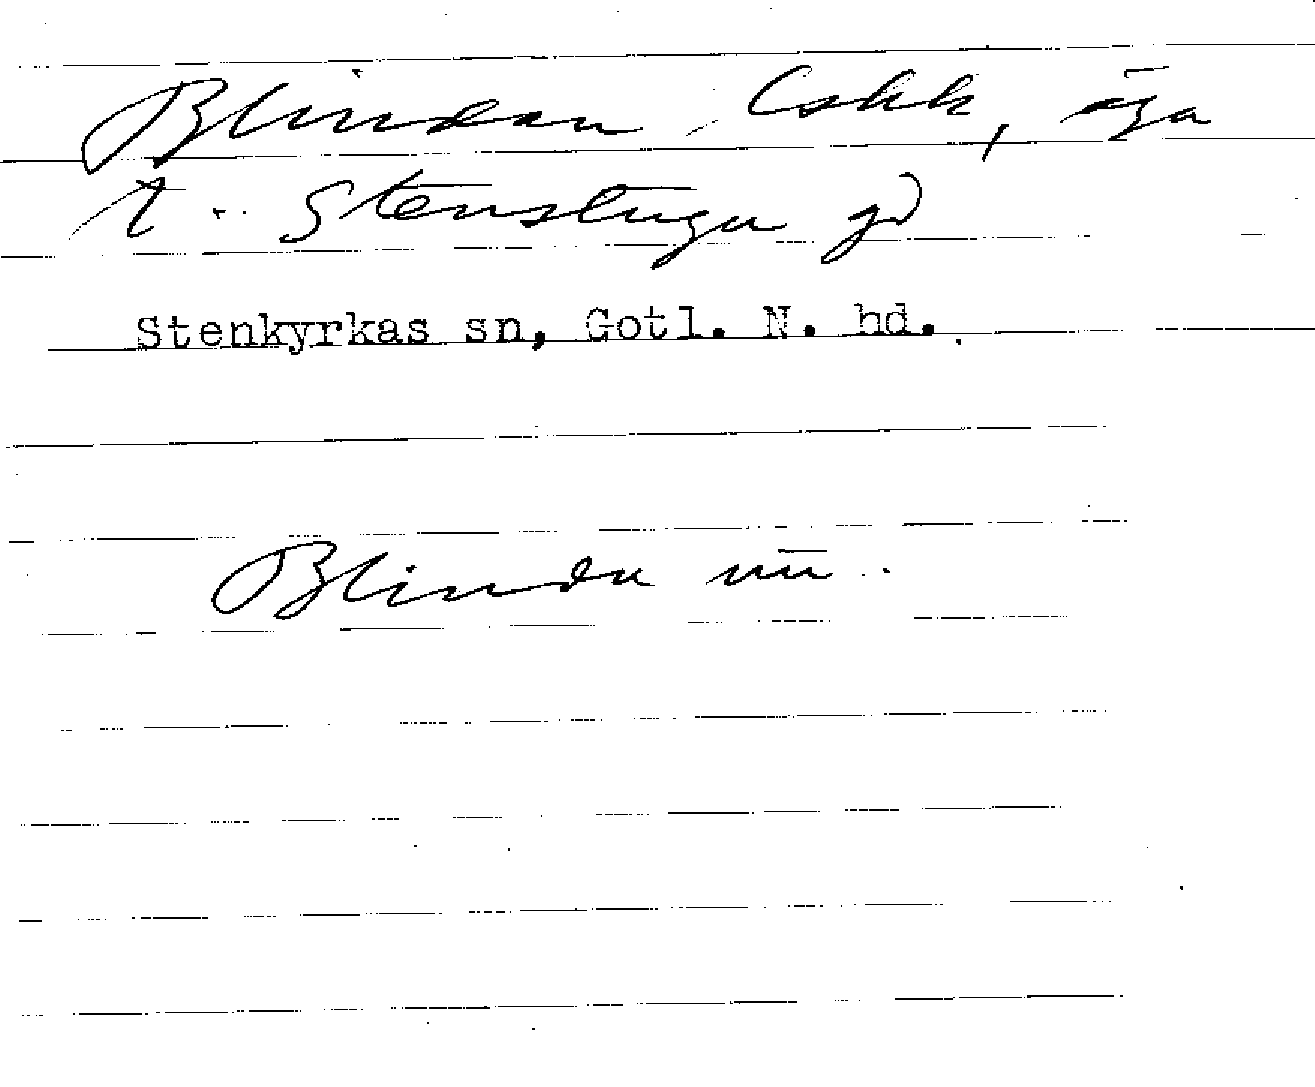 Blindan, Cskk, äga
t. Stenstugu gd
Stenkyrkas sn, Gotl. N. hd.
Blindu